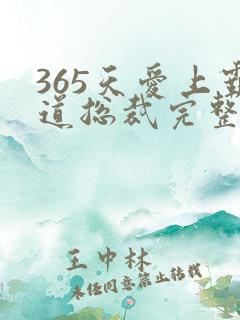 365天爱上霸
道总裁完整
王中林
未经同意禁止转载